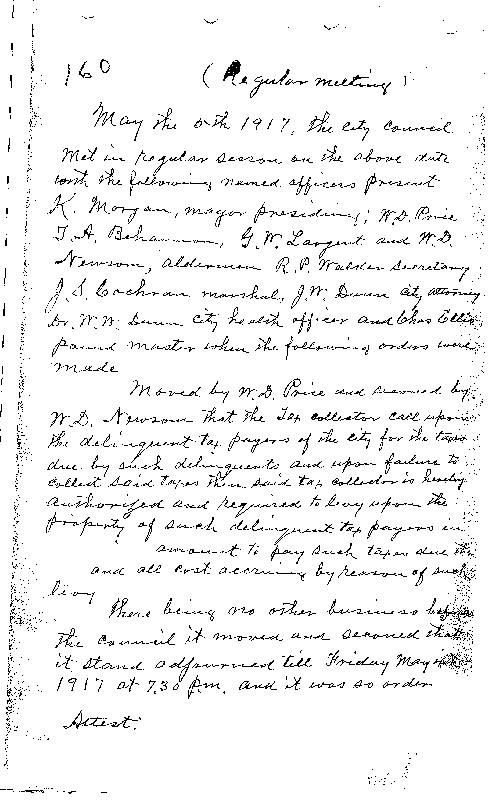 160
(Regular meeting)
May the 5th 1917, the city council
Met in regular session on the above date
with the following named officers present
K. Morgan, mayor presiding; W.D. Price
T.A. Bohannon, G.W. Largent and W.D.
Newsom, alderman R.P. Walder Secretary
J.S. Cochran marshal, J.W. Dunn City attorney
Dr. W.W. Dunn City health officer and Chas Ellis
pound master when the following orders were
made
Moved by W.D. Price and second by
W.D. Newsom that the Tax collector call upon
the delinquent tax payers of the city for the taxes
due by such delinquents and upon failure to
collect said taxes then said tax collector is hereby
authorized and required to levy upon the
property of such delinquent tax payers in
amount to pay such taxes due the
and all cost accruing by reason of such
levy
There being no other business before
the council it moved and second that
it stand adjourned till Friday May
1917 at 7.30 p.m. and it was so order
Attest: